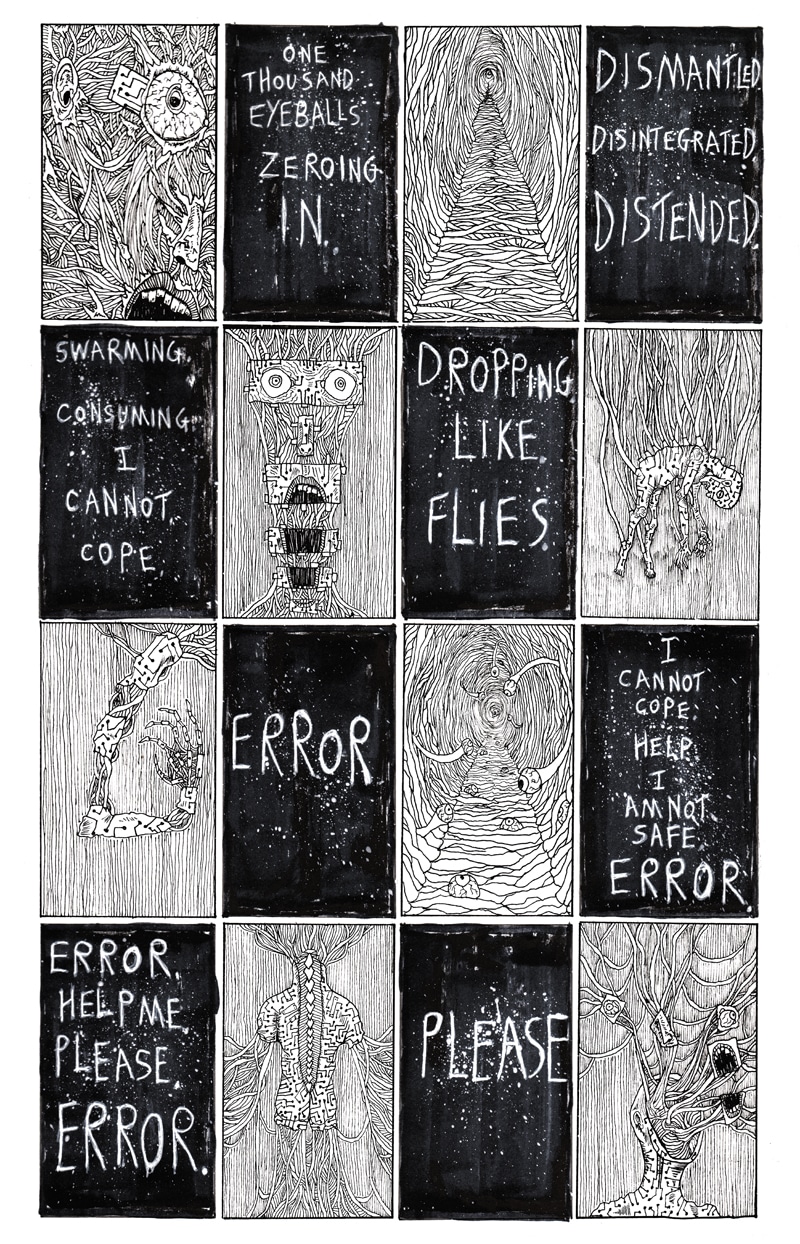 ONE
THOUSAND
EYEBALLS
ZEROING
IN.
DISMANTLED.
DISINTEGRATED.
DISTENDED.
SWARMING.
CONSUMING.
I
CANNOT
COPE
DROPPING
LIKE
FLIES.
ERROR
I
CANNOT
COPE.
HELP
I
AM NOT
SAFE
ERROR.
ERROR.
HELP ME.
PLEASE.
ERROR.
PLEASE